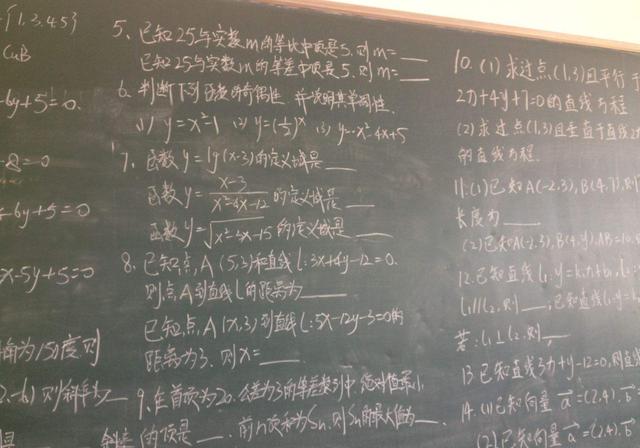 {1,3,4,5}
CuB
-6y+5=0.
-8=0
-6y+5=0
x-5y+5=0
角为150度则
则斜率为
5、已知25与实数m的等比中项是5,则m=
已知25与实数m的等差中项是5,则m=
6、判断下列函数的奇偶性,并说明其单调性.
(1) y=x²-1 (2) y=(½)ˣ (3) y=x²-4x+5
7、函数y=lg(x-3)的定义域是
函数y=(x-3)/(x²-4x-12)的定义域是
函数y=√(x²-2x-15)的定义域是
8、已知点A(5,2)和直线l:3x+4y-12=0.
则点A到直线l的距离为
已知点A(x,3)到直线l:5x-12y-3=0的
距离为3,则x=
9、在首项为20,公差为3的等差数列中
的项是 前n项和为Sn,则Sn的最大值为
10.(1)求过点(1,3)且平行于
2x+4y+7=0的直线方程
(2)求过点(1,3)且垂直于直线
的直线方程.
11.(1)已知A(-2,3),B(4,7),则
长度为
(2)已知A(-2,3),B(4,y),AB=10,
12.已知直线l₁:y=k₁x+b₁,
l₁//l₂,则 ;已知直线l₁:y=
若:l₁⊥l₂,则
13 已知直线3x+y-12=0,则直线
14.(1)已知向量a=(2,4),b=
(2)已知向量=(2,4),b